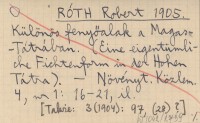 RÓTH Robert 1905.
Különös fenyőalak a Magas-
Tátrában. (Eine eigentümli-
che Fichtenform in der Hohen
Tátra). — Növényt. Közlem.
4, nº 1: 16-21, il
[Talrie: 3 (1904): 97, (28) ?]